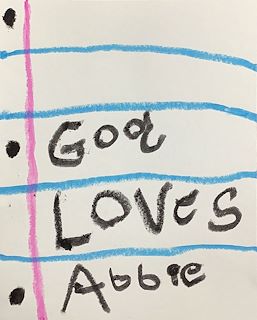 God
LOVes
Abbie